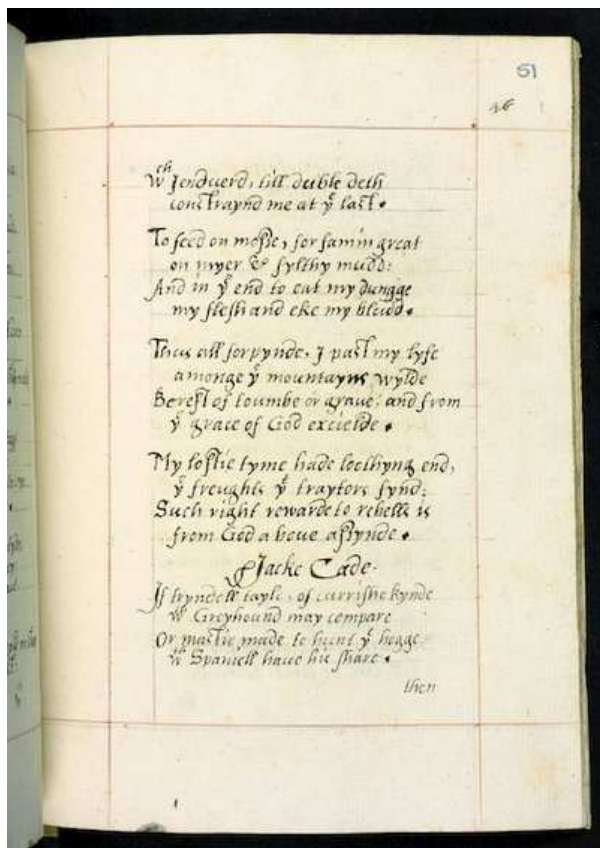 51
46
wch I enduerd, till duble deth
constraynd me at ye last.
To feed on mosse, for famin great
on myer & fylthy mudd:
And in ye end to eat my dungge
my flesh and eke my bludd.
Thus all forpynde, I past my lyfe
amonge ye mountayns wylde
Bereft of toumbe or graue; and from
ye grace of God excielde.
My loftie tyme hade lothyng end,
ye freughts yt traytors fynd;
Such right rewarde to rebells is
from God aboue assynde.
Jacke Cade.
If tryndell tayle, of currishe kynde
wt Greyhound may compare
Or mastie made to hunt ye hogge
wth Spaniell haue his share.
then